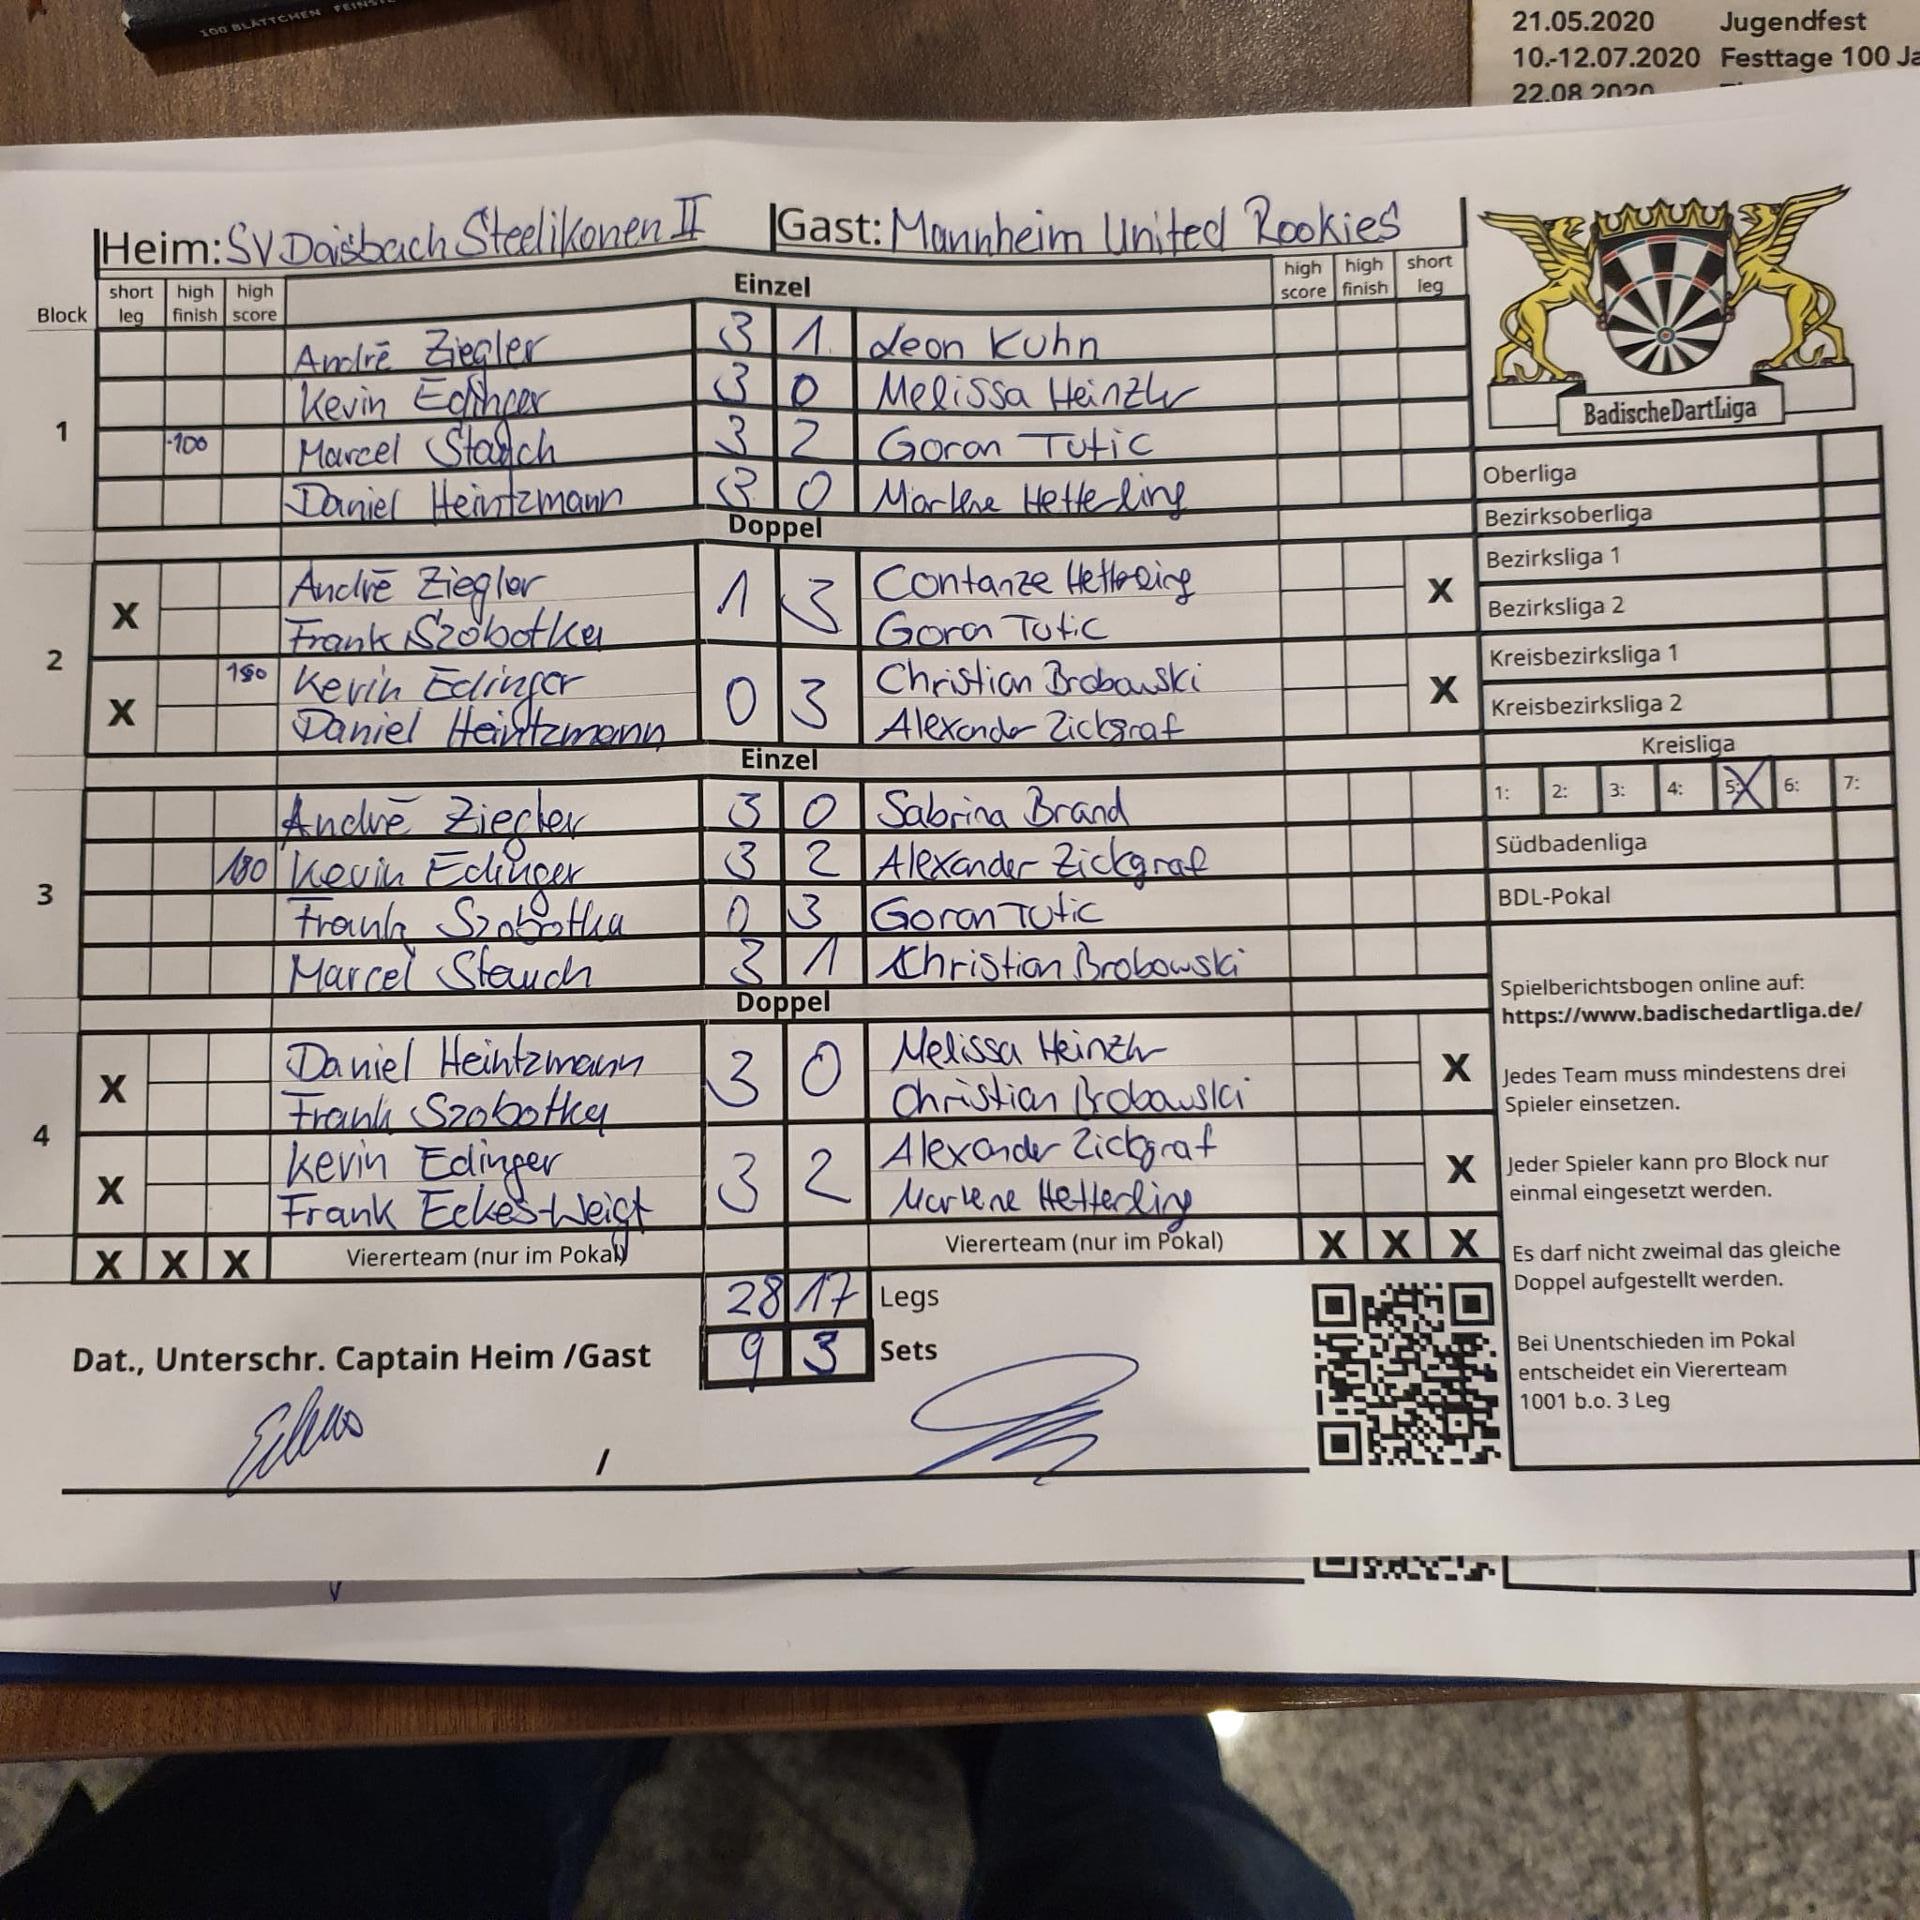 100 BLÄTTCHEN FEINSTE
21.05.2020 Jugendfest
10.-12.07.2020 Festtage 100 Ja
22.08.2020
Heim: SV Daisbach Steelikonen II Gast: Mannheim United Rookies
Block short leg high finish high score Einzel high score high finish short leg
1
André Ziegler 3 1 Leon Kuhn
Kevin Edinger 3 0 Melissa Heinzlr
100 Marcel Stauch 3 2 Goran Tutic
Daniel Heintzmann 3 0 Marlene Hetterling
Doppel
2
X André Ziegler 1 3 Contanze Hetterling X
Frank Szobotka Goran Tutic
X 180 Kevin Edinger 0 3 Christian Brobowski X
Daniel Heintzmann Alexander Zickgraf
Einzel
3
André Ziegler 3 0 Sabrina Brand
180 Kevin Edinger 3 2 Alexander Zickgraf
Frank Szobotka 0 3 Goran Tutic
Marcel Stauch 3 1 Christian Brobowski
Doppel
4
X Daniel Heintzmann 3 0 Melissa Heinzlr X
Frank Szobotka Christian Brobowski
X Kevin Edinger 3 2 Alexander Zickgraf X
Frank Eckes-Weigt Marlene Hetterling
X X X Viererteam (nur im Pokal) Viererteam (nur im Pokal) X X X
28 17 Legs
9 3 Sets
Dat., Unterschr. Captain Heim /Gast
/
BadischeDartLiga
Oberliga
Bezirksoberliga
Bezirksliga 1
Bezirksliga 2
Kreisbezirksliga 1
Kreisbezirksliga 2
Kreisliga
1: 2: 3: 4: 5: X 6: 7:
Südbadenliga
BDL-Pokal
Spielberichtsbogen online auf:
https://www.badischedartliga.de/
Jedes Team muss mindestens drei
Spieler einsetzen.
Jeder Spieler kann pro Block nur
einmal eingesetzt werden.
Es darf nicht zweimal das gleiche
Doppel aufgestellt werden.
Bei Unentschieden im Pokal
entscheidet ein Viererteam
1001 b.o. 3 Leg